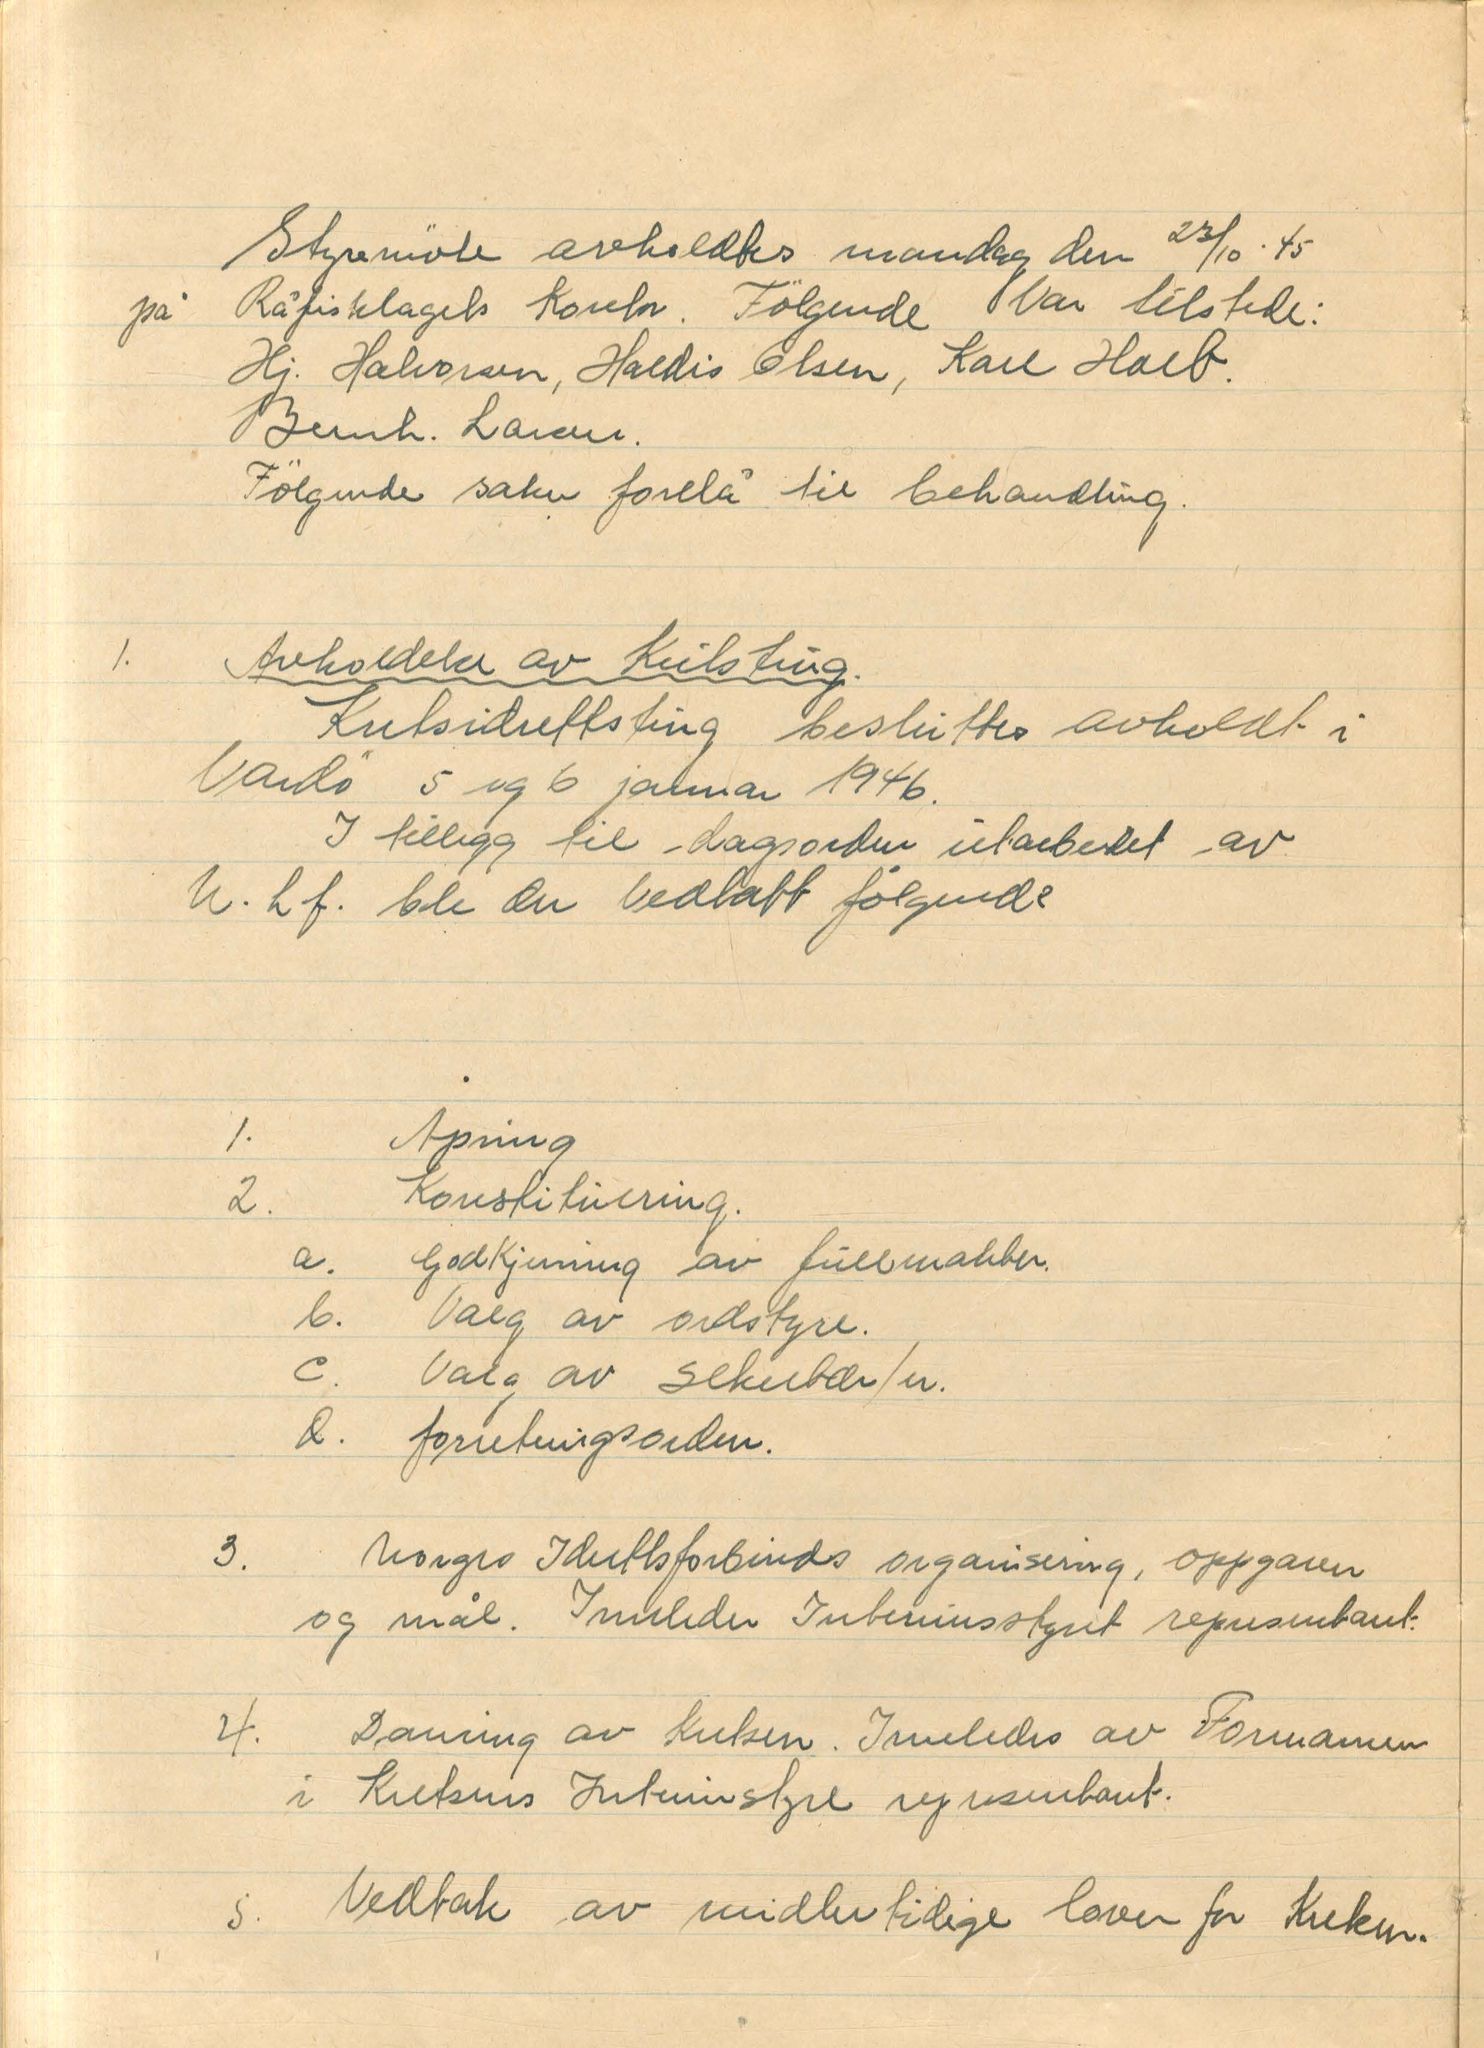 Styremöte avholdtes mandag den 23/10.45
på Råfisklagets Kontor. Fölgende var tilstede:
Hj. Halvorsen, Haldis Olsen, Karl Holt.
Bernh. Larsen.
Fölgende saker forelå til behandling.
1. Avholdelse av Kretsting.
Kretsidrettsting besluttes avholdt i
Vardö 5 og 6 januar 1946.
I tillegg til dagsorden utarbeidet av
N.I.f. ble der vedtatt fölgende
1. Åpning
2. Konstituering.
a. Godkjenning av fullmakter.
b. Valg av ordstyre.
c. Valg av sekretær/er.
d. forretningsorden.
3. Norges Idrettsforbunds organisering, oppgaver
og mål. Innleder Interimsstyret representant.
4. Danning av kretsen. Innledes av Formannen
i Kretsens Interimstyre representant.
5. Vedtak av midlertidige lover for Kretsen.